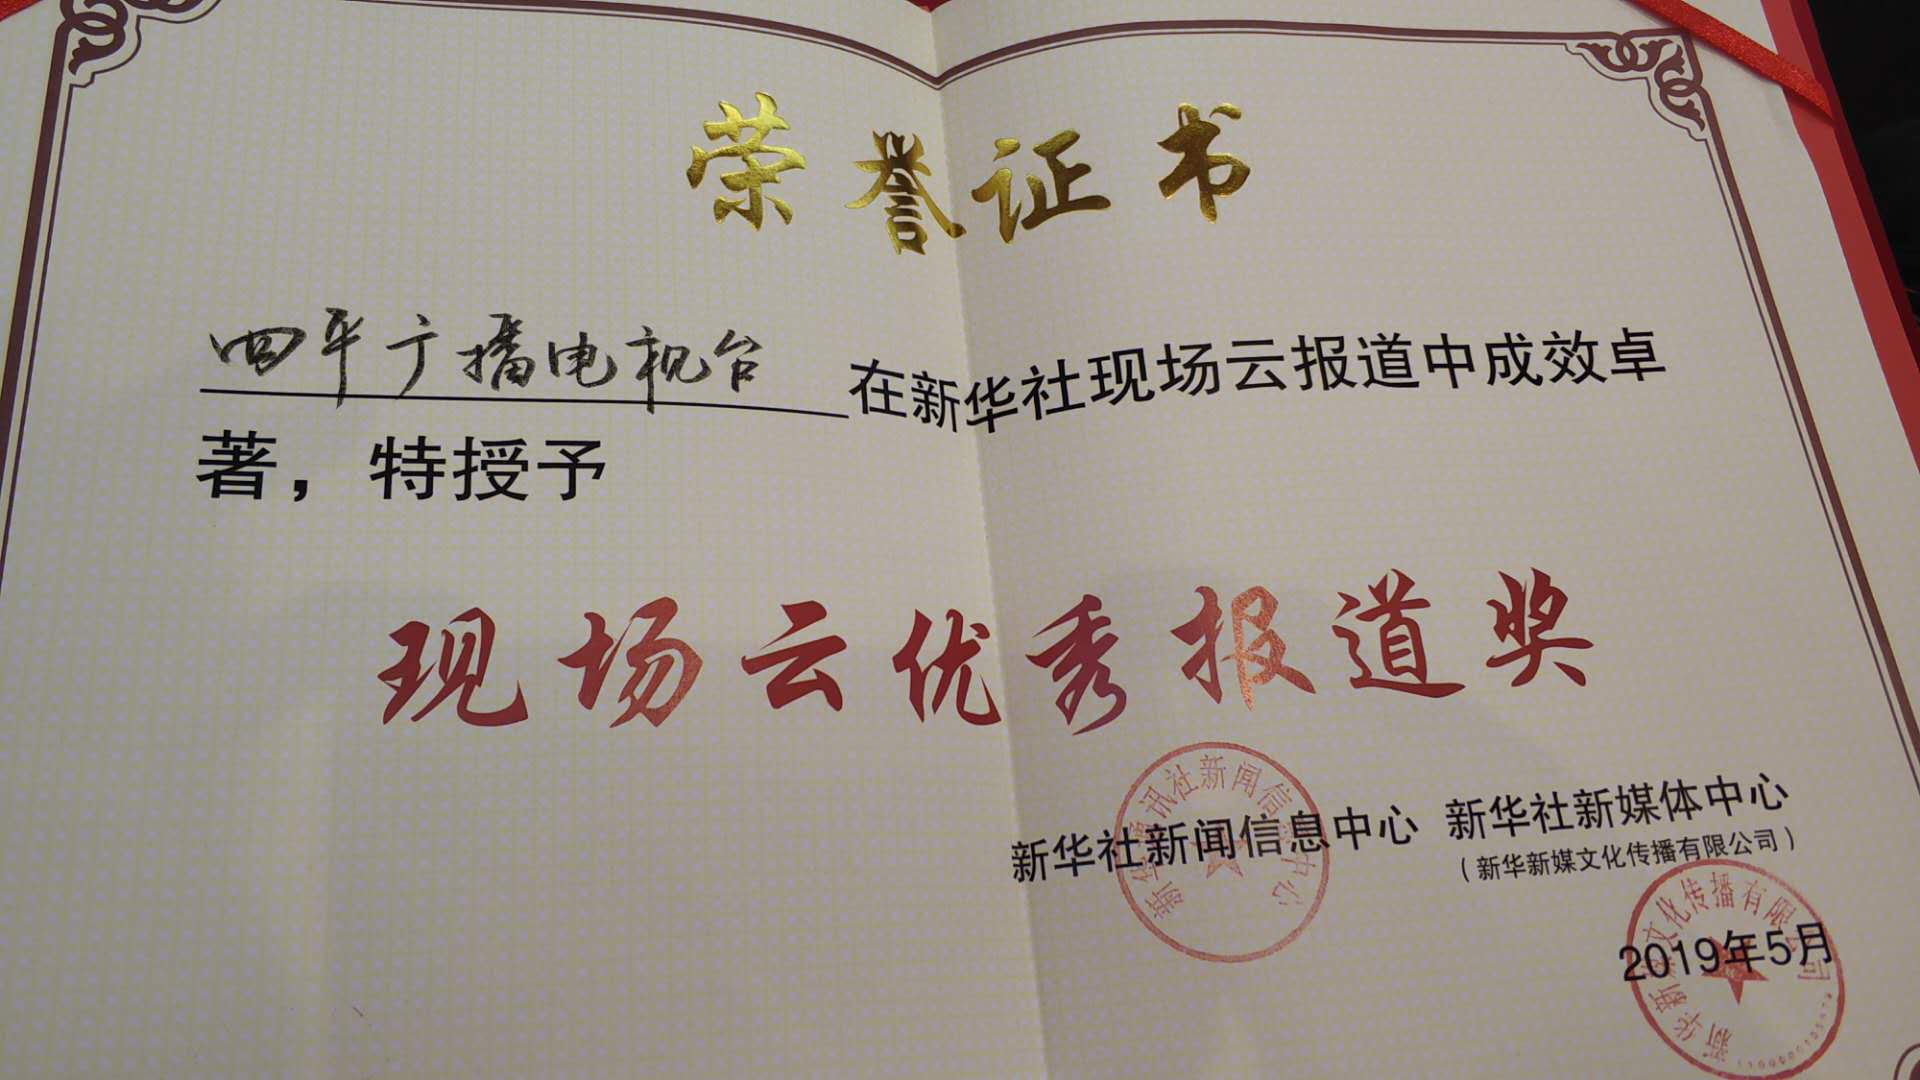 荣誉证书
四平广播电视台在新华社现场云报道中成效卓
著，特授予
现场云优秀报道奖
新华社新闻信息中心 新华社新媒体中心
（新华新媒文化传播有限公司）
2019年5月
新华通讯社新闻信息中心
新华新媒文化传播有限公司